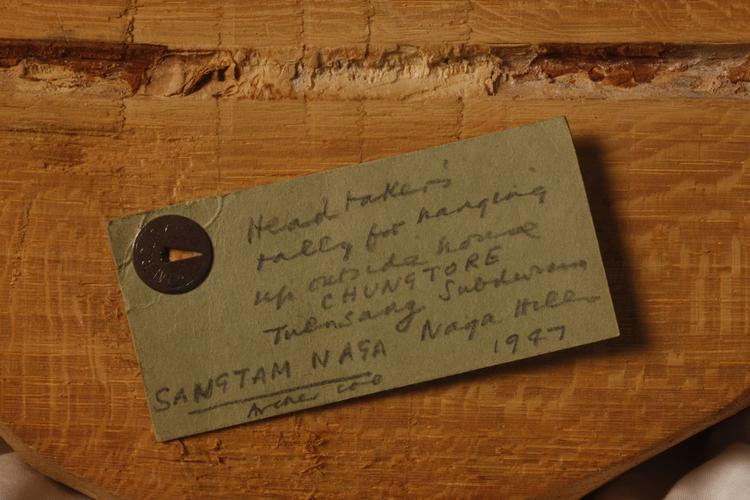 Head taker's
tally for hanging
up outside house
CHUNGTORE
Tuensang Subdivision
Naga Hills
SANGTAM NAGA 1947
Archer coll